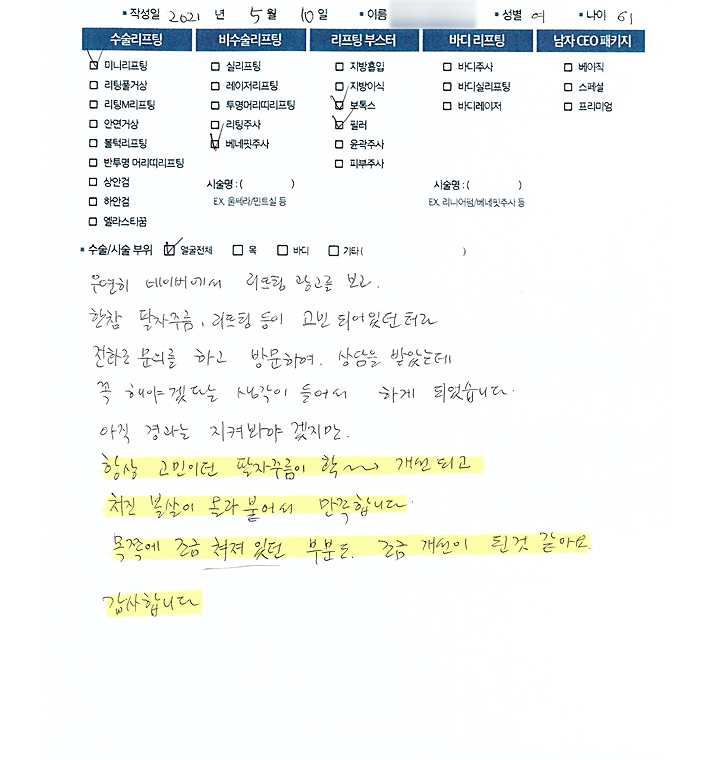 ▪ 작성일 2021 년 5 월 10 일 ▪ 이름 ▪ 성별 여 ▪ 나이 61
수술리프팅 비수술리프팅 리프팅 부스터 바디 리프팅 남자 CEO 패키지
☑ 미니리프팅 ☐ 실리프팅 ☐ 지방흡입 ☐ 바디주사 ☐ 베이직
☐ 리팅풀거상 ☐ 레이저리프팅 ☐ 지방이식 ☐ 바디실리프팅 ☐ 스페셜
☐ 리팅M리프팅 ☐ 투명머리띠리프팅 ☑ 보톡스 ☐ 바디레이저 ☐ 프리미엄
☐ 안면거상 ☐ 리팅주사 ☑ 필러
☐ 볼턱리프팅 ☑ 베네핏주사 ☐ 윤곽주사
☐ 반투명 머리띠리프팅 ☐ 피부주사
☐ 상안검 시술명 : ( ) 시술명 : ( )
☐ 하안검 EX. 울쎄라/민트실 등 EX. 리니어펌/베네핏주사 등
☐ 엘라스티꿈
▪ 수술/시술 부위 ☑ 얼굴전체 ☐ 목 ☐ 바디 ☐ 기타 ( )
우연히 네이버에서 리프팅 광고를 보고.
한참 팔자주름, 리프팅 등이 고민 되어있던 터라
전화로 문의를 하고 방문하여. 상담을 받았는데
꼭 해야겠다는 생각이 들어서 하게 되었습니다.
아직 경과는 지켜봐야 겠지만.
항상 고민이던 팔자주름이 확~~ 개선 되고
처진 볼살이 올라 붙어서 만족합니다.
목쪽에 조금 쳐져 있던 부분도. 조금 개선이 된것 같아요.
감사합니다